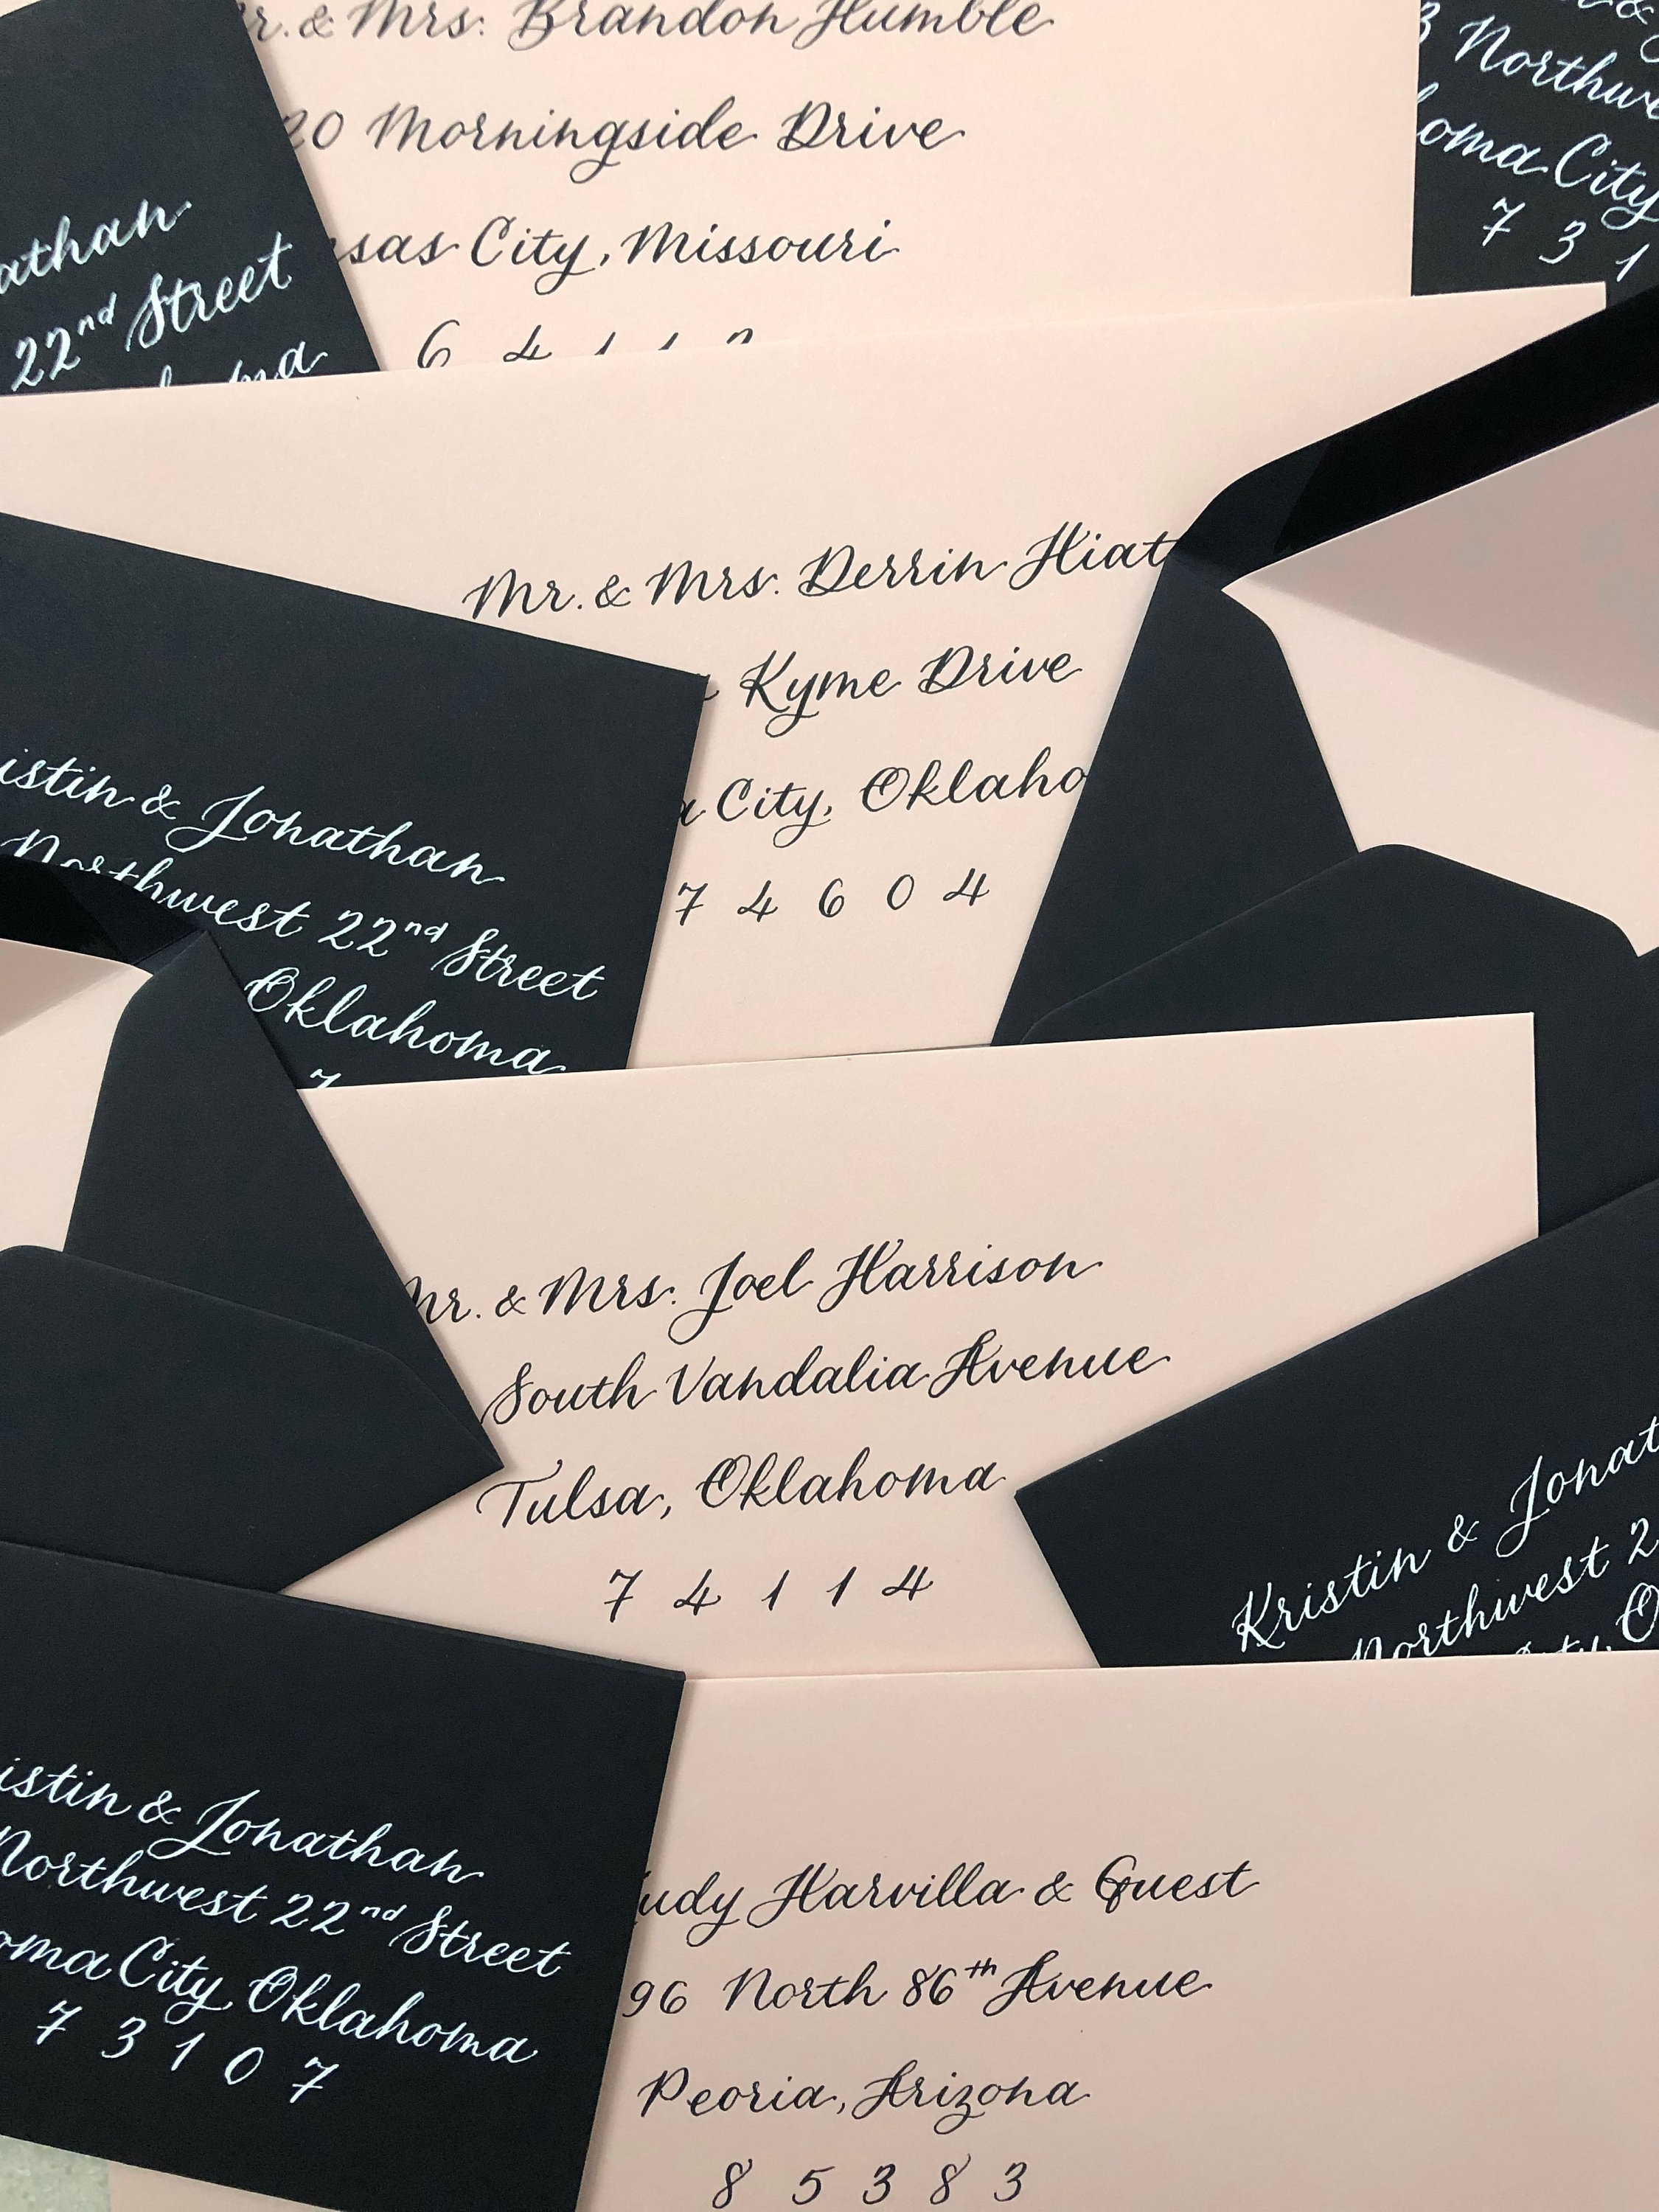 Mrs. Brandon Humble
20 Morningside Drive
City, Missouri
6 4 1 1
22nd Street
City
7 3 1
Mr. & Mrs. Derrin
Kyme Drive
City,
7 4 6 0 4
& Jonathan
Northwest 22nd Street
Oklahoma
7
Mr. & Mrs. Joel Harrison
South Vandalia Avenue
Tulsa, Oklahoma
7 4 1 1 4
Kristin &
Northwest 2
& Jonathan
Northwest 22nd Street
City, Oklahoma
7 3 1 0 7
Harvilla & Guest
96 North 86th Avenue
Peoria, Arizona
8 5 3 8 3